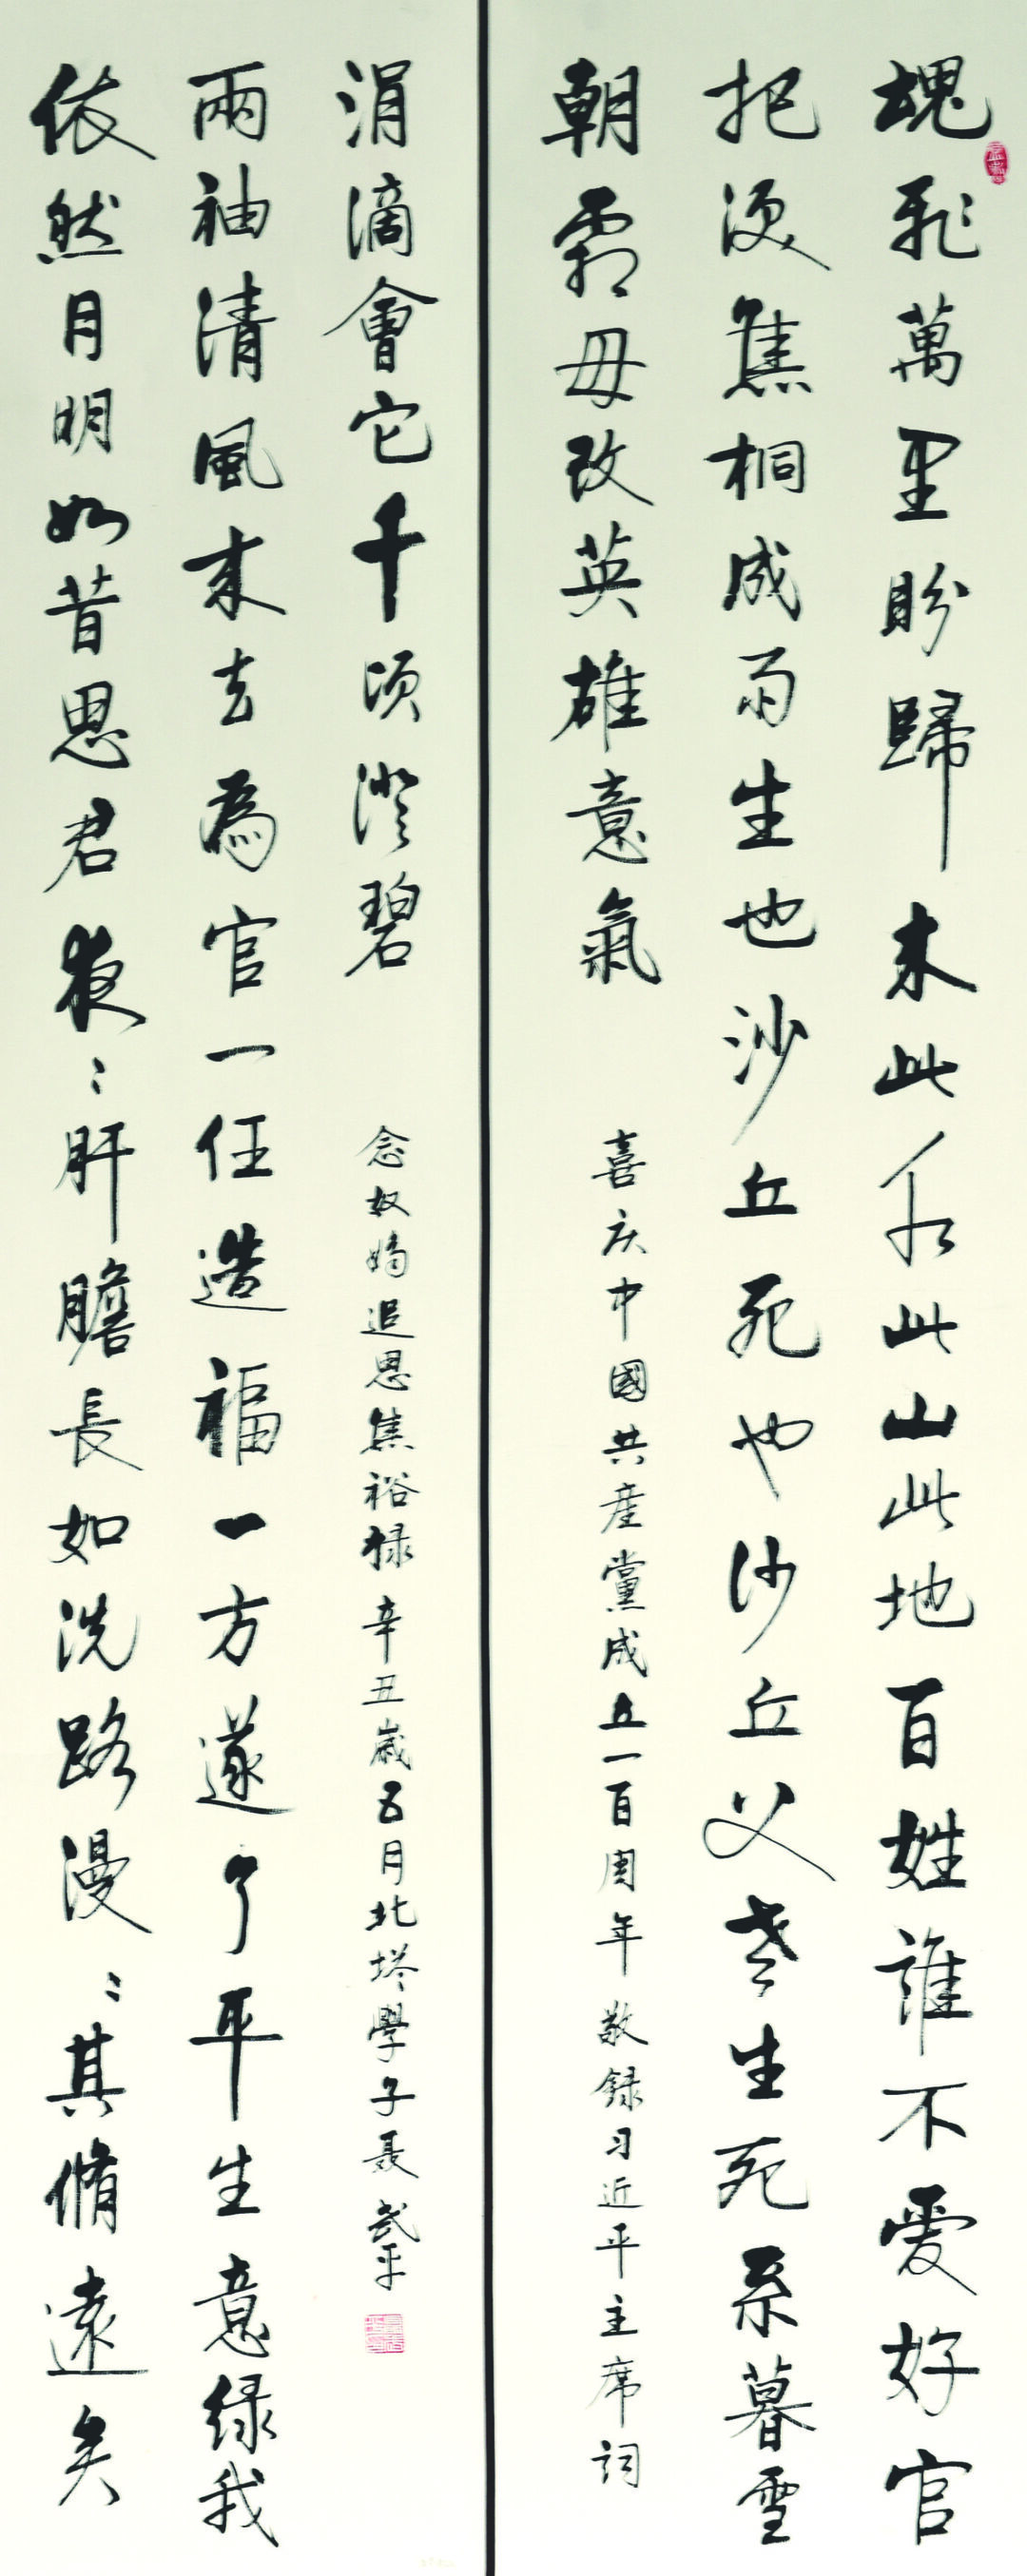 魂飛萬里盼歸來此水此山此地百姓誰不愛好官
把淚焦桐成雨生也沙丘死也沙丘父老生死系暮雪
朝霜毋改英雄意氣
喜庆中國共産黨成立一百周年 敬録习近平主席詞
依然月明如昔思君夜〻肝膽長如洗路漫〻其脩遠矣
兩袖清風來去為官一任造福一方遂了平生意緑我
涓滴會它千頃澄碧
念奴嬌追思焦裕禄 辛丑歲五月北塔學子聂武平